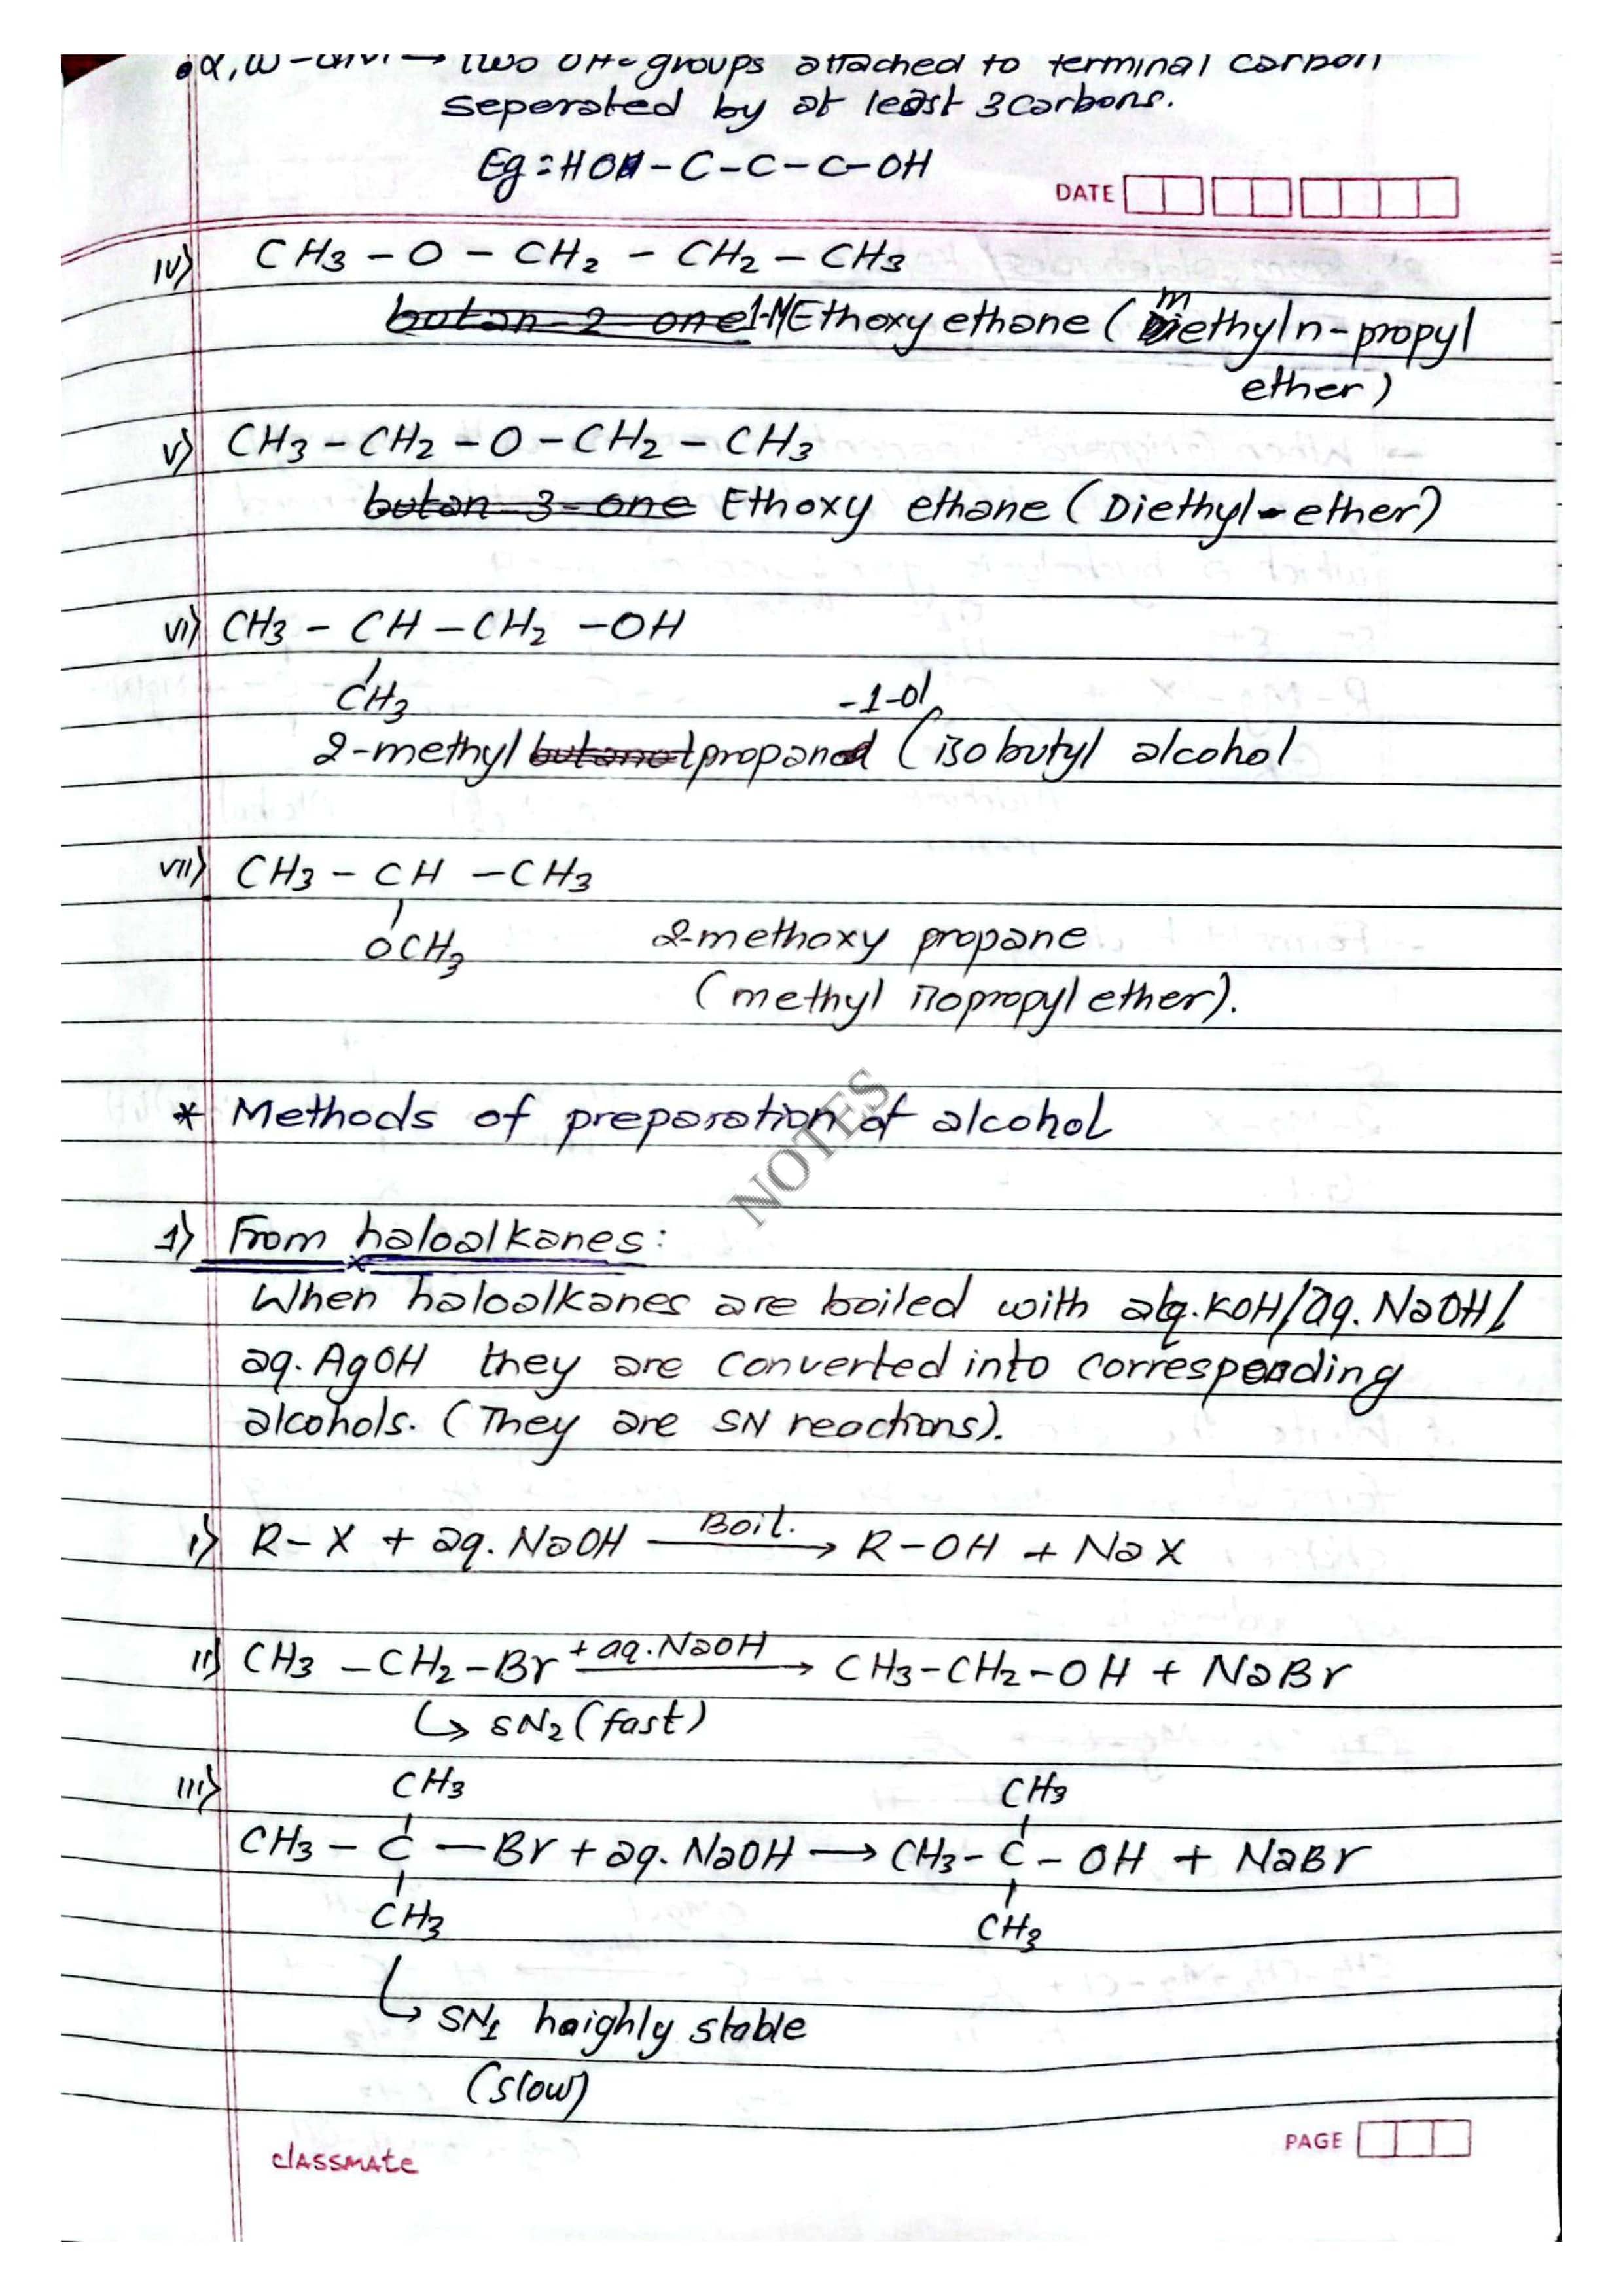 α, ω - → Two OH- groups attached to terminal carbon
seperated by at least 3 carbons.
Eg = HO - C - C - C - OH
DATE
iv) CH3 - O - CH2 - CH2 - CH3
butan-2-one 1-MEthoxy ethane (methyl n-propyl
ether)
v) CH3 - CH2 - O - CH2 - CH3
butan-3-one Ethoxy ethane (Diethyl-ether)
vi) CH3 - CH - CH2 - OH
CH3
-1-ol
2-methyl butanol propan (isobutyl alcohol
vii) CH3 - CH - CH3
OCH3 2-methoxy propane
(methyl isopropyl ether).
* Methods of preparation of alcohol
NOTES
1) From haloalkanes:
When haloalkanes are boiled with alq.KOH/aq.NaOH/
aq.AgOH they are converted into corresponding
alcohols. (They are SN reactions).
i) R-X + aq. NaOH Boil. → R-OH + NaX
ii) CH3 - CH2 - Br + aq.NaOH → CH3-CH2-OH + NaBr
↳ SN2 (fast)
iii) CH3 CH3
CH3 - C - Br + aq. NaOH → CH3 - C - OH + NaBr
CH3 CH3
↳ SN1 haighly stable
(slow)
PAGE
classmate